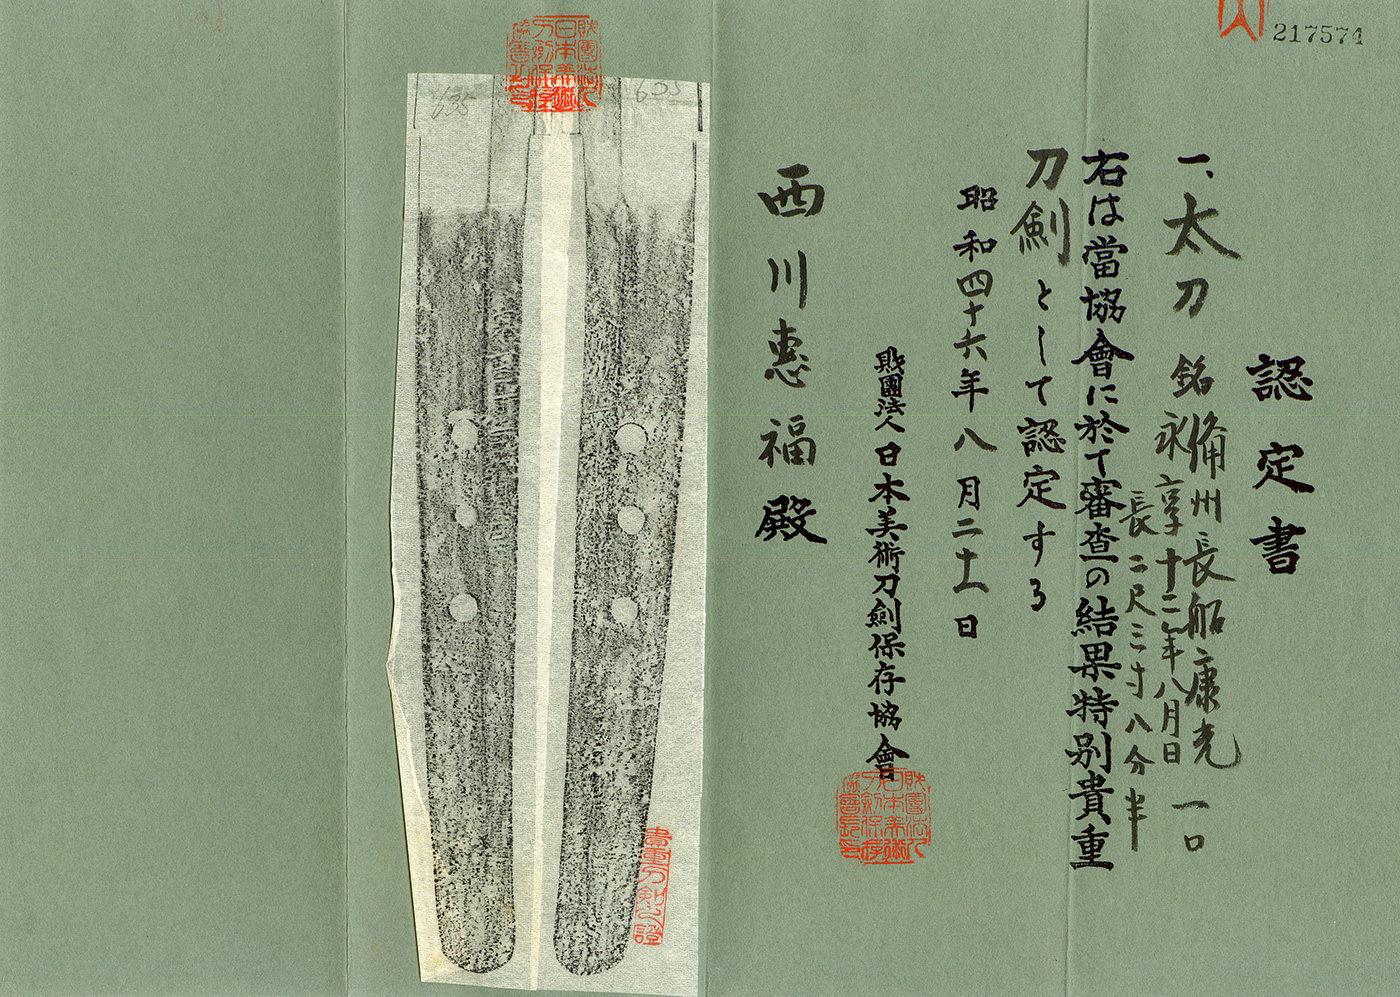 217574
認定書
一、太刀 銘 備州長船康光 一口
永享十二年八月日
長二尺三寸八分半
右は當協會に於て審査の結果特別貴重
刀劍として認定する
昭和四十六年八月二十一日
財團法人日本美術刀劍保存協會
西川惠福殿
635
635
財團法人日本美術刀劍保存協會
貴重刀剣之證